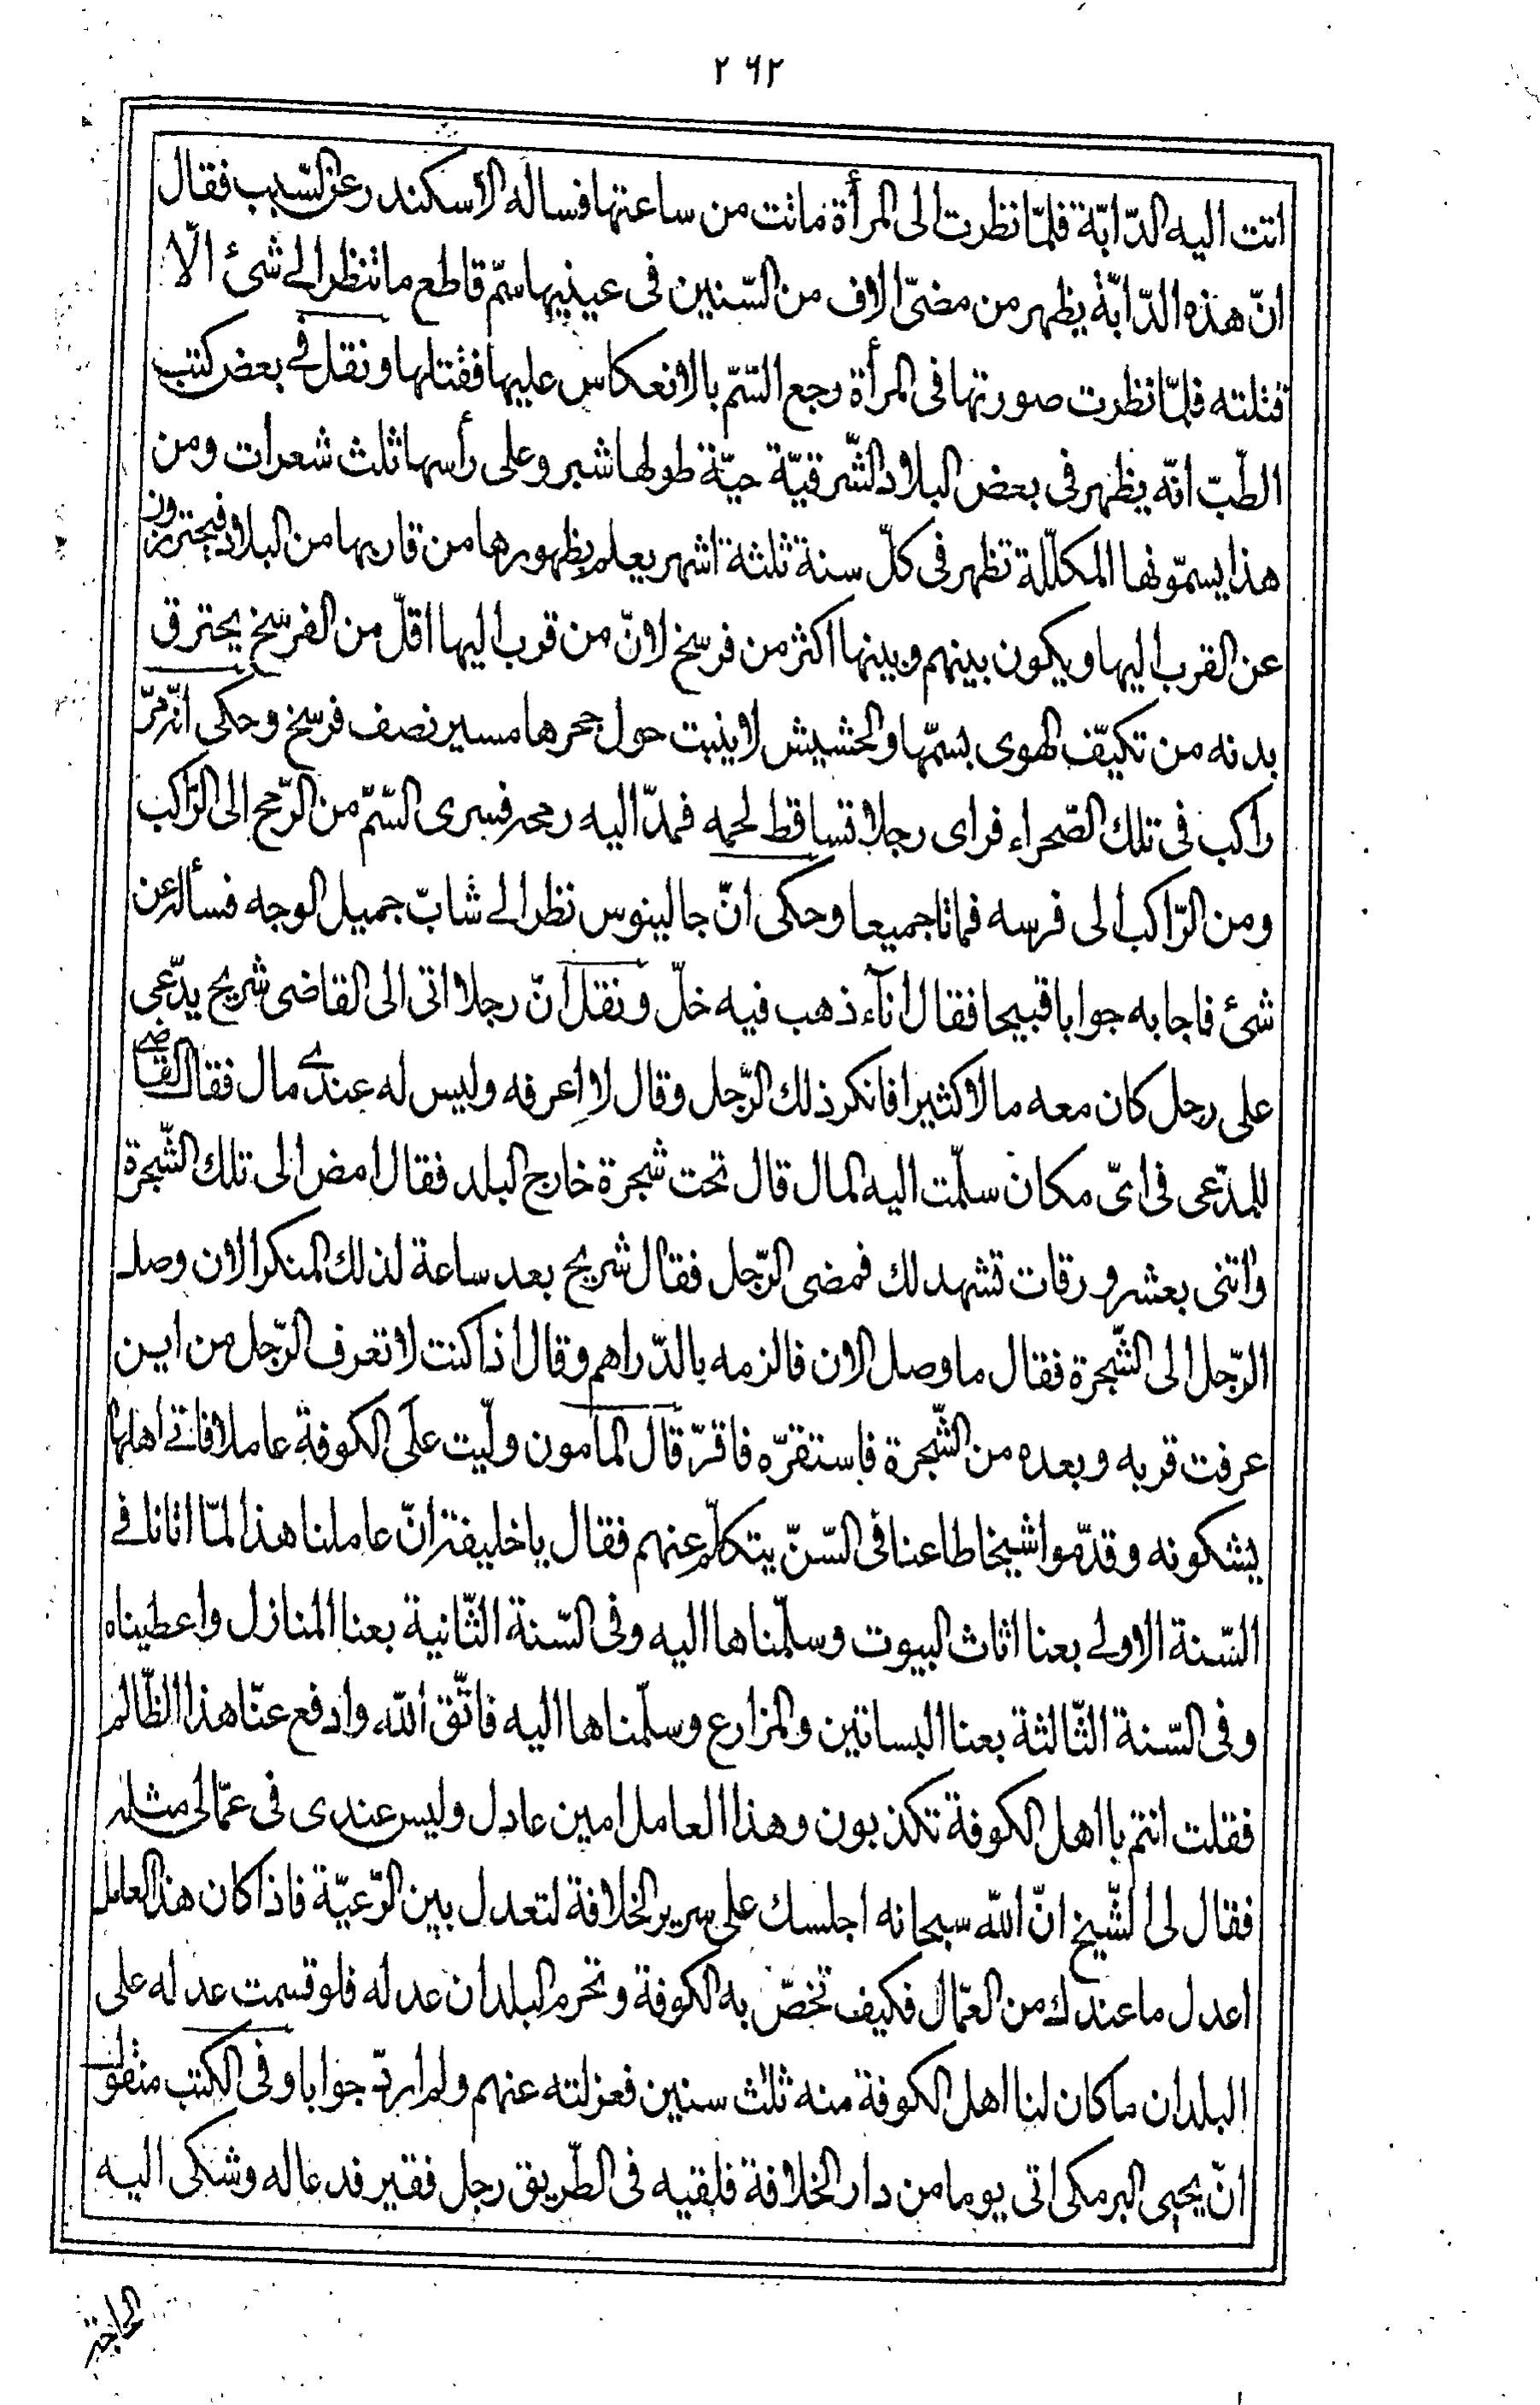 ٢٦٢
اتت اليه الدّابّة فلمّا نظرت الى المرأة ماتت من ساعتها فساله الاسكندر عن السّبب فقال
انّ هذه الدّابّة يظهر من مضىّ الاف من السّنين فى عينيها سمّ قاطع ما تنظر الى شئ الّا
قتلته فلمّا نظرت صورتها فى المرأة رجع السّمّ بالانعكاس عليها فقتلها ونقل فى بعض كتب
الطّبّ انّه يظهر فى بعض البلاد الشّرقيّة حيّة طولها شبر وعلى رأسها ثلث شعرات ومن
هذا يسمّونها المكلّلة تظهر فى كلّ سنة ثلثة اشهر يعلم بظهورها من قاربها من البلاد فيحترزون
عن القرب اليها ويكون بينهم وبينها اكثر من فرسخ لانّ من قرب اليها اقلّ من الفرسخ يحترق
بدنه من تكيّف الهوى بسمّها والحشيش لا ينبت حول جحرها مسير نصف فرسخ وحكى انّه مرّ
راكب فى تلك الصّحراء فراى رجلا تساقط لحمه فمدّ اليه رمحه فسرى السّمّ من الرّمح الى الرّاكب
ومن الرّاكب الى فرسه فماتا جميعا وحكى انّ جالينوس نظر الى شابّ جميل الوجه فسأله عن
شئ فاجابه جوابا قبيحا فقال انآء ذهب فيه خلّ ونقل انّ رجلا اتى الى القاضى شريح يدّعى
على رجل كان معه مالا كثيرا فانكر ذلك الرّجل وقال لا اعرفه وليس له عندى مال فقال القاضى
للمدّعى فى اىّ مكان سلّمت اليه المال قال تحت شجرة خارج البلد فقال امض الى تلك الشّجرة
واتنى بعشر ورقات تشهد لك فمضى الرّجل فقال شريح بعد ساعة لذلك المنكر الان وصل
الرّجل الى الشّجرة فقال ما وصل الان فالزمه بالدّراهم وقال اذا كنت لا تعرف الرّجل من اين
عرفت قربه وبعده من الشّجرة فاستقرّه فاقرّ قال المأمون ولّيت على الكوفة عاملا فاتى اهلها
يشكونه وقدّموا شيخا طاعنا فى السّنّ يتكلّم عنهم فقال يا خليفة انّ عاملنا هذا لمّا اتانا فى
السّنة الاولى بعنا اثاث البيوت وسلّمناها اليه وفى السّنة الثّانية بعنا المنازل واعطيناه
وفى السّنة الثّالثة بعنا البساتين والمزارع وسلّمناها اليه فاتّق اللّه وادفع عنّا هذا الظّالم
فقلت انتم يا اهل الكوفة تكذبون وهذا العامل امين عادل وليس عندى فى عمّالى مثله
فقال لى الشّيخ انّ اللّه سبحانه اجلسك على سرير الخلافة لتعدل بين الرّعيّة فاذا كان هذا العامل
اعدل ما عندك من العمّال فكيف تخصّ به الكوفة وتحرم البلدان عدله فلو قسمت عدله على
البلدان ما كان لنا اهل الكوفة منه ثلث سنين فعزلته عنهم ولم اردّ جوابا وفى الكتب منقول
انّ يحيى البرمكى اتى يوما من دار الخلافة فلقيه فى الطّريق رجل فقير فدعا له وشكى اليه
الحاجة